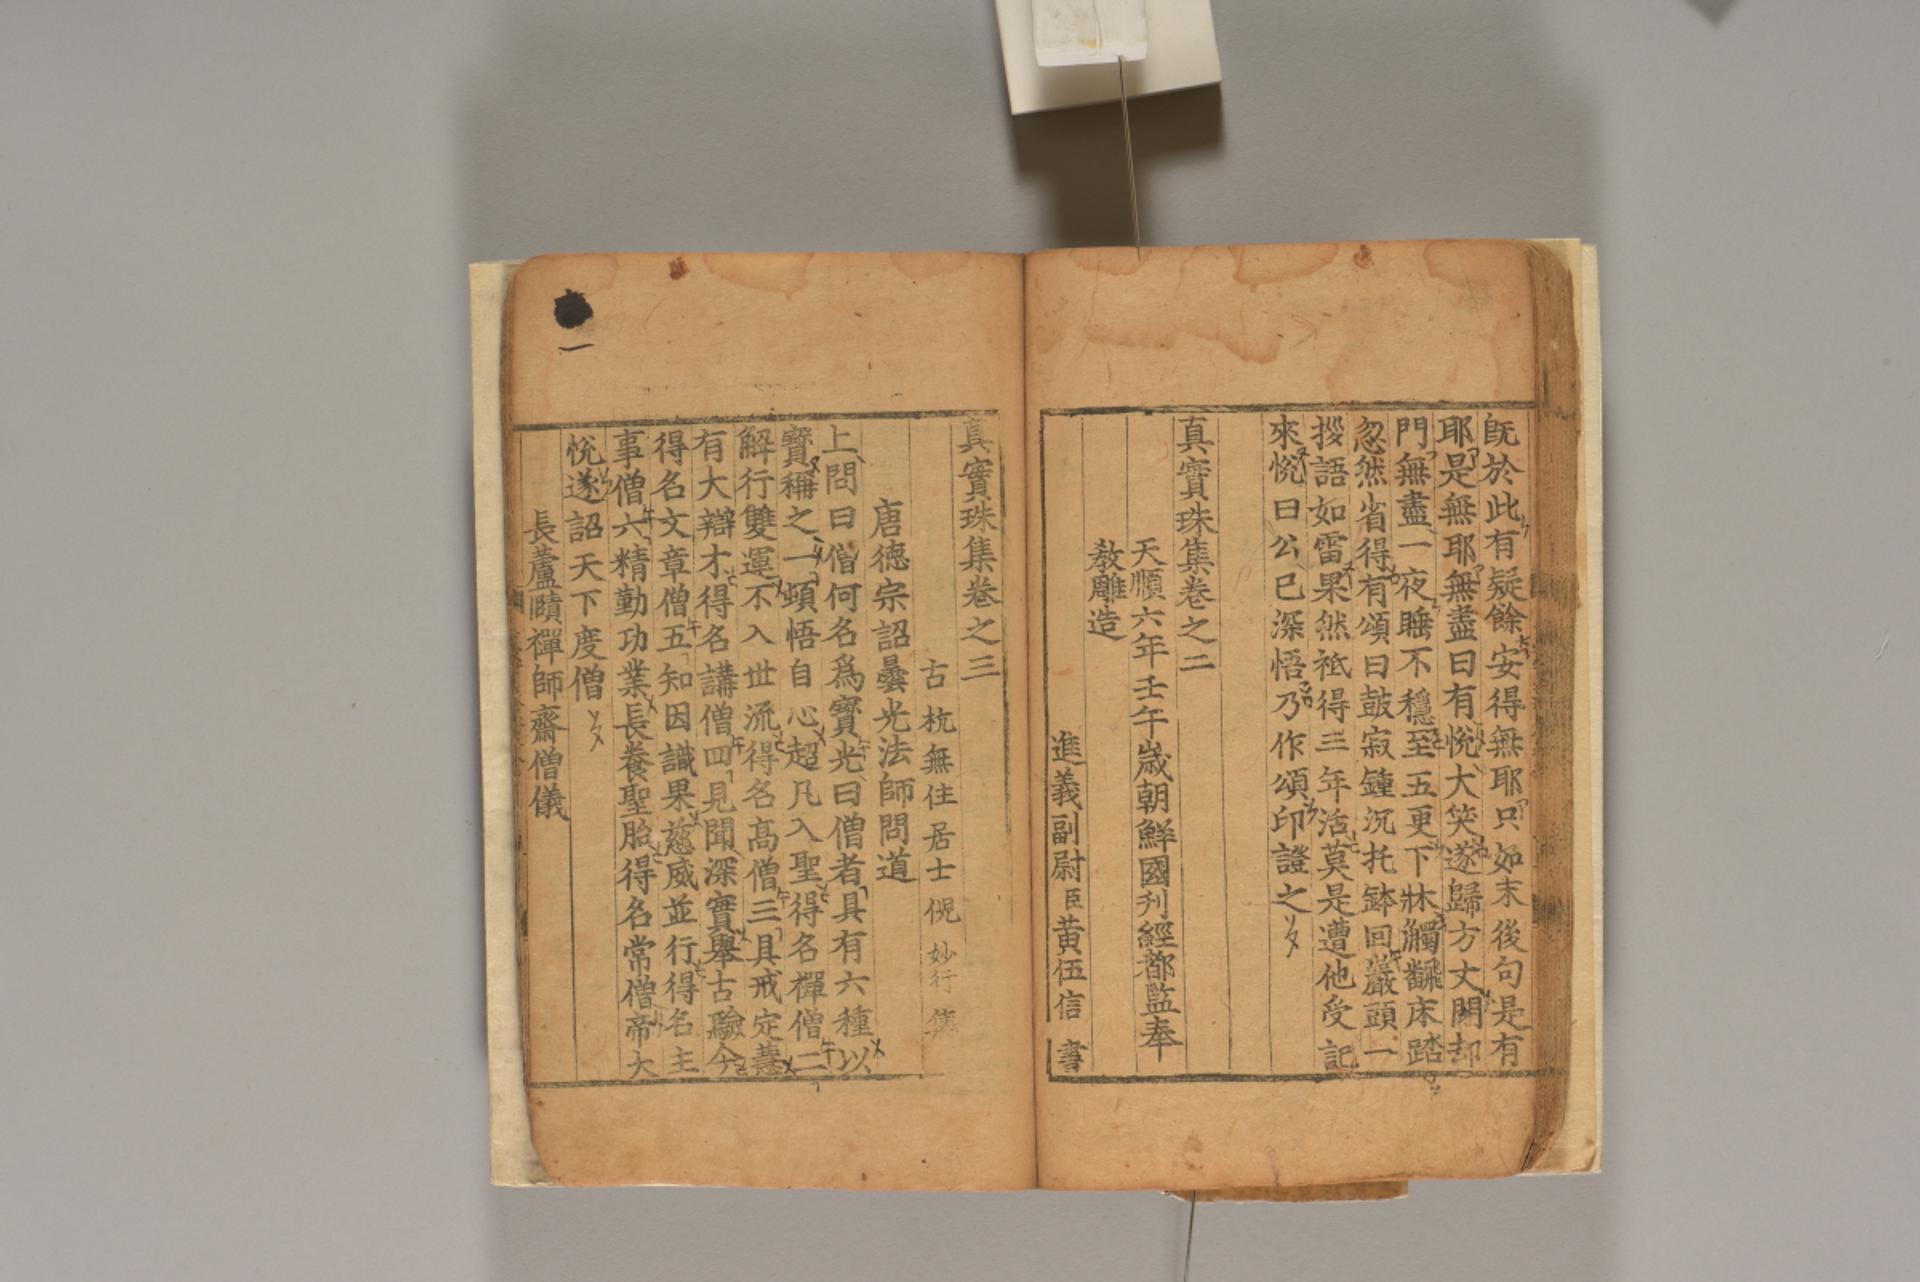 旣於此有疑餘安得無耶只如末後句是有
耶是無耶無盡曰有悅大笑遂歸方丈閉却
門無盡一夜睡不穩至五更下牀觸飜床踏
忽然省得有頌曰鼓寂鍾沉托鉢回巖頭一
拶語如雷果然祇得三年活莫是遭他受記
來悅曰公已深悟乃作頌印證之
真實珠集卷之二
天順六年壬午歲朝鮮國刊經都監奉
敎雕造
進義副尉臣黃伍信 書
真實珠集卷之三
古杭無住居士倪 妙行 集
唐德宗詔曇光法師問道
上問曰僧何名爲寶光曰僧者具有六種以
寶稱之一頓悟自心超凡入聖得名禪僧二
解行雙運不入世流得名高僧三具戒定慧
有大辯才得名講僧四見聞深實舉古驗今
得名文章僧五知因識果慈威並行得名主
事僧六精勤功業長養聖胎得名常僧帝大
悅遂詔天下度僧
長蘆賾禪師齋僧儀